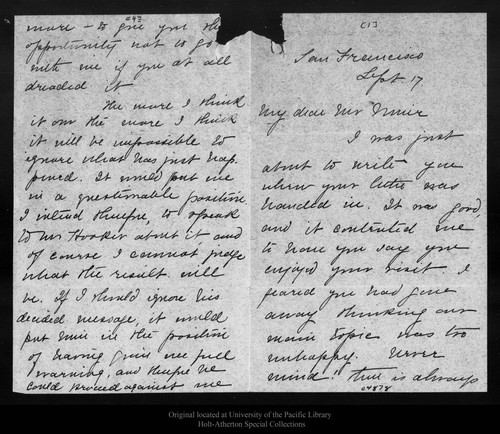 (1)
San Francisco
Sept 17
My dear Mr Muir
I was just
about to write you
when your letter was
handed in. It was good,
and it contented me
to have you say you
enjoyed your visit. I
feared you had gone
away thinking our
main topic was too
unhappy. Never
mind! There is always
04878
(4)
more - to give you the
opportunity not to go
with me if you at all
dreaded it
The more I think
it over the more I think
it will be impossible to
ignore what has just hap
pened. It would put me
in a questionable position.
I intend therefore, to speak
to Mr Hooker about it and
of course I cannot judge
what the result will
be. If I should ignore his
decided message, it would
put him in the position
of having given me full
warning, and therefore he
could proceed against me
Original located at University of the Pacific Library
Holt-Atherton Special Collections